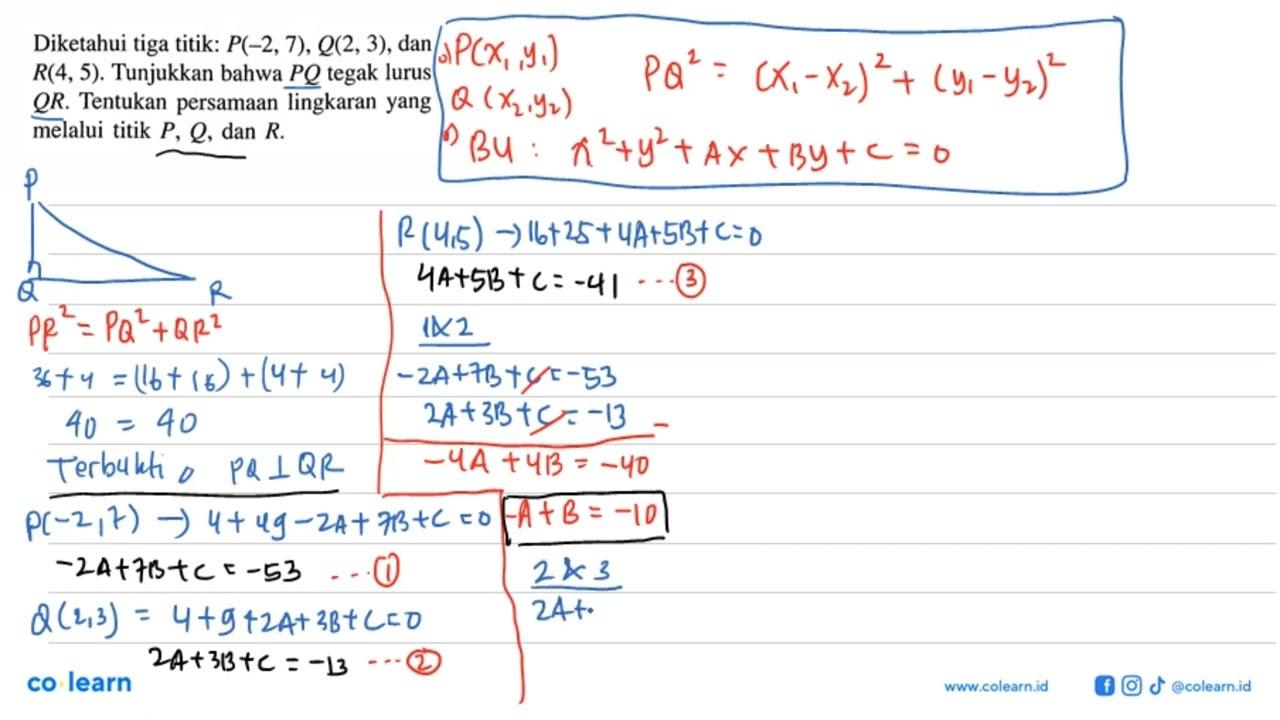 Diketahui tiga titik: P(–2, 7), Q(2, 3), dan
R(4, 5). Tunjukkan bahwa PQ tegak lurus
QR. Tentukan persamaan lingkaran yang
melalui titik P, Q, dan R.
P(x₁,y₁)
Q(x₂,y₂)
PQ² = (x₁ - x₂)² + (y₁ - y₂)²
BU : x² + y² + Ax + By + C = 0
P
Q
R
PR² = PQ² + QR²
36+4 = (16+16)+(4+4)
40 = 40
Terbukti PQ ⊥ QR
P(-2,7) → 4+49-2A+7B+C=0
-2A+7B+C = -53 ...①
Q(2,3) = 4+9+2A+3B+C=0
2A+3B+C = -13 ...②
R(4,5) → 16+25+4A+5B+C=0
4A+5B+C = -41 ...③
1&2
-2A+7B+C = -53
2A+3B+C = -13 -
-4A+4B = -40
-A+B = -10
2&3
2A+
co learn
www.colearn.id
@colearn.id